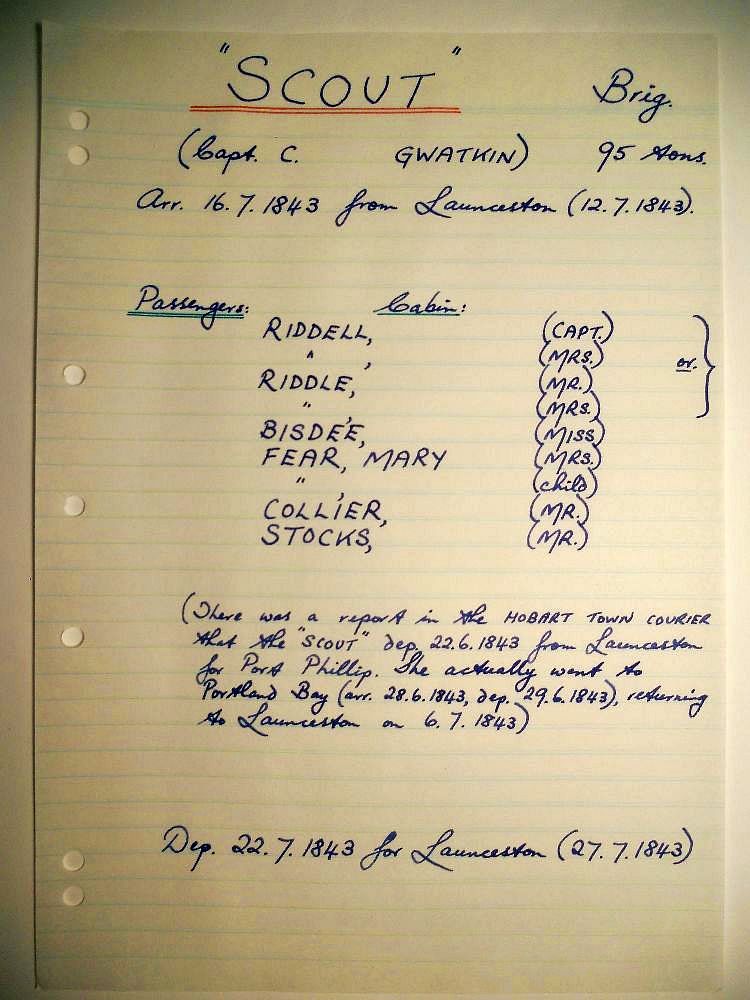 "SCOUT" Brig.
(Capt. C. GWATKIN) 95 tons.
Arr. 16.7.1843 from Launceston (12.7.1843).
Passengers: Cabin:
RIDDELL, (CAPT.)
" , (MRS.) or.
RIDDLE, (MR.)
" , (MRS.)
BISDEE, (MISS)
FEAR, MARY (MRS.)
" , (child)
COLLIER, (MR.)
STOCKS, (MR.)
(There was a report in the HOBART TOWN COURIER
that the "SCOUT" dep. 22.6.1843 from Launceston
for Port Phillip. She actually went to
Portland Bay (arr. 28.6.1843, dep. 29.6.1843), returning
to Launceston on 6.7.1843)
Dep. 22.7.1843 for Launceston (27.7.1843)